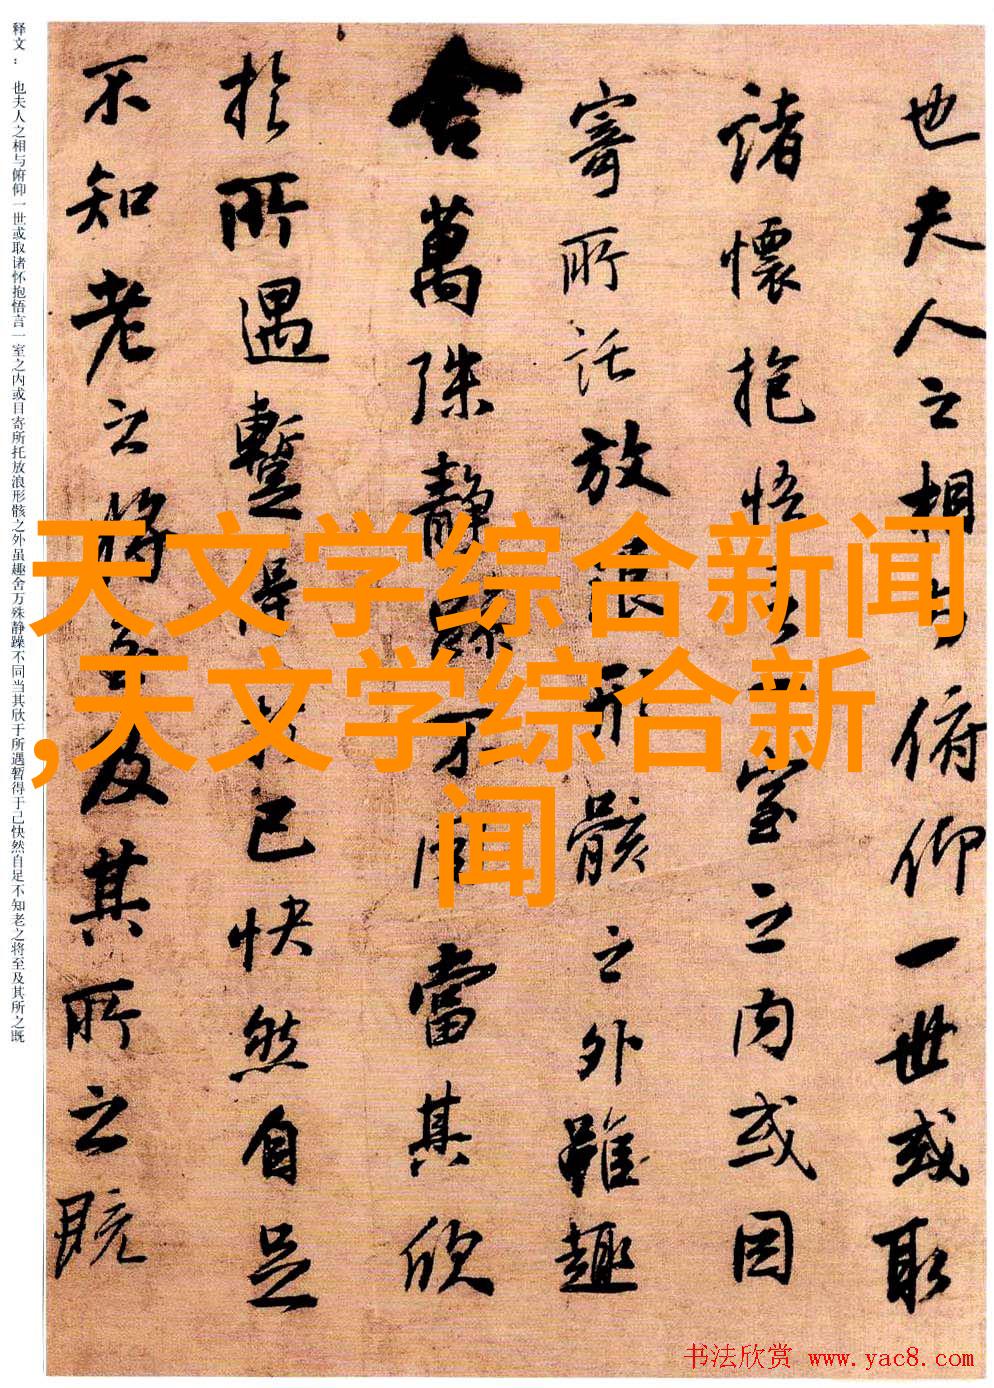 也夫人之相与俯仰一世或取
諸懷抱悟言一室之内或因
寄所託放浪形骸之外雖趣
舍萬殊靜躁不同當其欣
於所遇蹔得於己快然自足
不知老之將至及其所之既
释文： 也夫人之相与俯仰一世或取诸怀抱悟言一室之内或目寄所托放浪形骸之外虽趣舍万殊静躁不同当其欣于所遇暂得于己快然自足不知老之将至及其所之既
天文学综合新闻
,天文学综合新
闻
书法欣赏 www.yac8.com